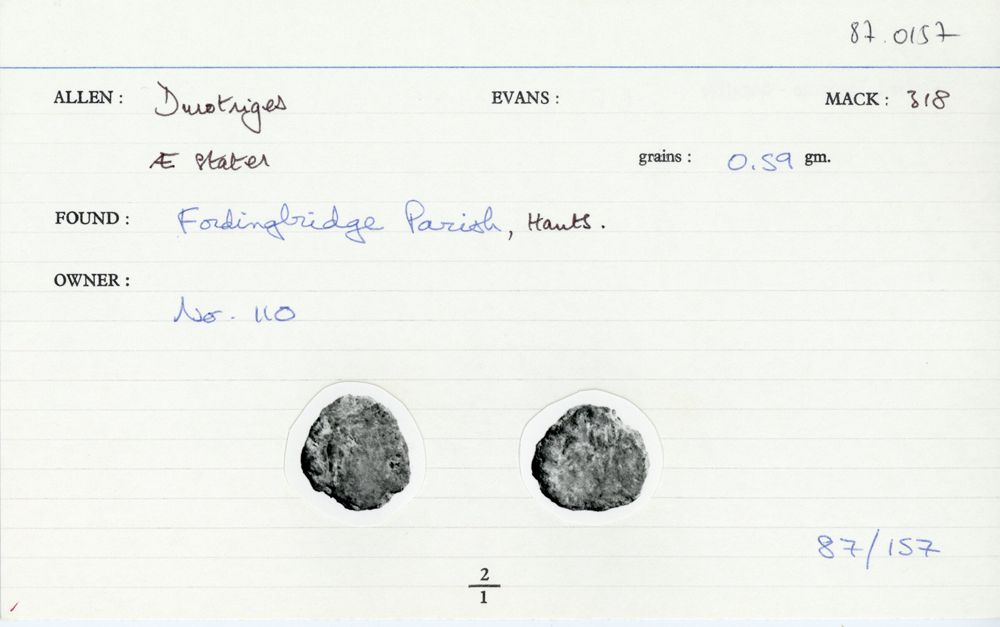 87.0157
ALLEN : Durotriges EVANS : MACK : 318
Æ stater grains : 0.59 gm.
FOUND : Fordingbridge Parish, Hants.
OWNER :
No. 110
87/157
2
1